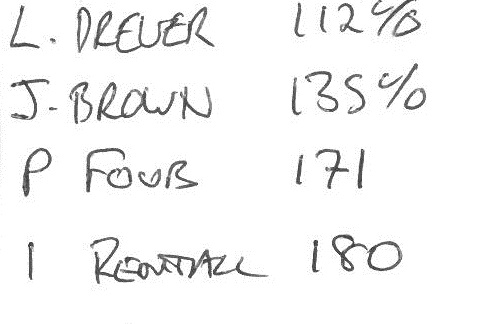 L. DREVER 112%
J. BROWN 135%
P FOUB 171
1 180